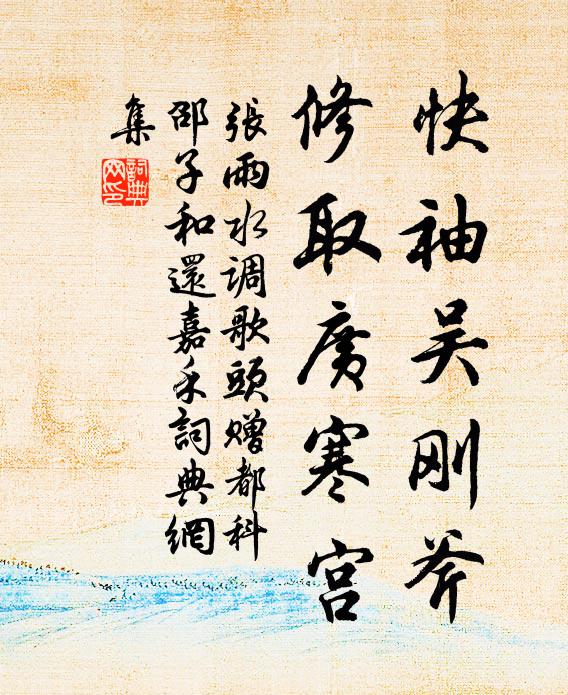 快袖吴刚斧
修取广寒宫
張雨水调歌頭赠都科
邵子和還嘉禾詞典網
集
詞典
网印